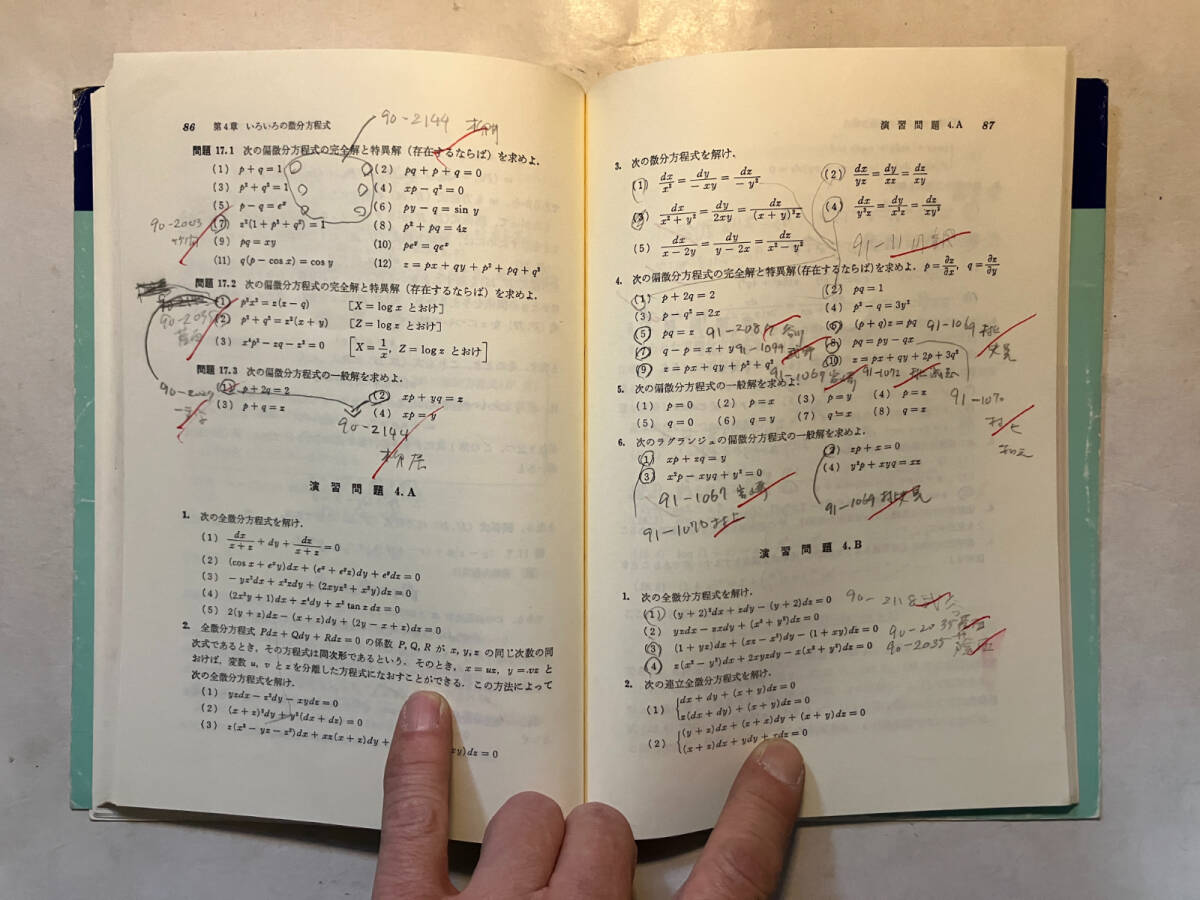 86 第4章 いろいろの微分方程式
90-2144
問題 17.1 次の偏微分方程式の完全解と特異解(存在するならば)を求めよ.
(1) p+q=1 (2) pq+p+q=0
(3) p²+q²=1 (4) xp-q²=0
(5) p-q=eˣ (6) py-q=sin y
(7) z²(1+p²+q²)=1 (8) p²+pq=4z
90-2003
(9) pq=xy (10) peʸ=qeˣ
(11) q(p-cos x)=cos y (12) z=px+qy+p²+pq+q²
問題 17.2 次の偏微分方程式の完全解と特異解(存在するならば)を求めよ.
(1) p²x²=z(z-q) [X=log x とおけ]
90-2035
(2) p²+q²=z²(x+y) [Z=log z とおけ]
(3) x⁴p²-zq-z²=0 [X=1/x, Z=log z とおけ]
問題 17.3 次の偏微分方程式の一般解を求めよ.
(1) p+2q=2 (2) xp+yq=z
(3) p+q=z (4) xp=y
90-2144
演習問題 4.A
1. 次の全微分方程式を解け.
(1) dx/(x+z)+dy+dz/(x+z)=0
(2) (cos x+eˣy)dx+(eˣ+eʸz)dy+eʸdz=0
(3) -yz²dx+x²zdy+(2xyz²+x²y)dz=0
(4) (2x²y+1)dx+x⁴dy+x² tan z dz=0
(5) 2(y+z)dx-(x+z)dy+(2y-x+z)dz=0
2. 全微分方程式 Pdx+Qdy+Rdz=0 の係数 P, Q, R が x, y, z の同じ次数の同
次式であるとき,その方程式は同次形であるという. そのとき, x=uz, y=vz と
おけば, 変数 u, v と z を分離した方程式になおすことができる. この方法によって
次の全微分方程式を解け.
(1) yzdx-z²dy-xydz=0
(2) (x+z)²dy+y²(dx+dz)=0
(3) z(x²-yz-z²)dx+xz(x+z)dy+ xy)dz=0
演習問題 4.A 87
3. 次の微分方程式を解け.
(1) dx/x²=dy/-xy=dz/-y² (2) dx/yz=dy/xz=dz/xy
(3) dx/(x²+y²)=dy/2xy=dz/(x+y)²z (4) dx/y²z=dy/x²z=dz/xy²
(5) dx/(x-2y)=dy/(y-2x)=dz/(x²-y²)
4. 次の偏微分方程式の完全解と特異解(存在するならば)を求めよ. p=∂z/∂x, q=∂z/∂y
(1) p+2q=2 (2) pq=1
(3) p²-q²=2x (4) p²-q=3y²
(5) pq=z 91-208 (6) (p+q)z=pq 91-1069
(7) q-p=x+y 91-1099 (8) pq=py-qx
(9) z=px+qy+p²+q² (10) z=px+qy+2p+3q²
91-1069 91-1072
5. 次の偏微分方程式の一般解を求めよ.
(1) p=0 (2) p=x (3) p=y (4) p=z
91-1070
(5) q=0 (6) q=y (7) q=x (8) q=z
6. 次のラグランジュの偏微分方程式の一般解を求めよ.
(1) xp+zq=y (2) zp+x=0
(3) x²p-xyq+y²=0 (4) y²p+xyq=xz
91-1067
91-1069
91-1070 村上
演習問題 4.B
1. 次の全微分方程式を解け.
(1) (y+z)²dx+zdy-(y+z)dz=0 90-2118
(2) yzdx-zxdy+(x²+y²)dz=0
(3) (1+yz)dx+(xz-x²)dy-(1+xy)dz=0 90-2035
(4) z(x²-y²)dx+2xyzdy-x(x²+y²)dz=0 90-2035
2. 次の連立全微分方程式を解け.
(1) dx+dy+(x+y)dz=0
z(dx+dy)+(x+y)dz=0
(2) (y+z)dx+(z+x)dy+(x+y)dz=0
(x+z)dx+ydy+xdz=0